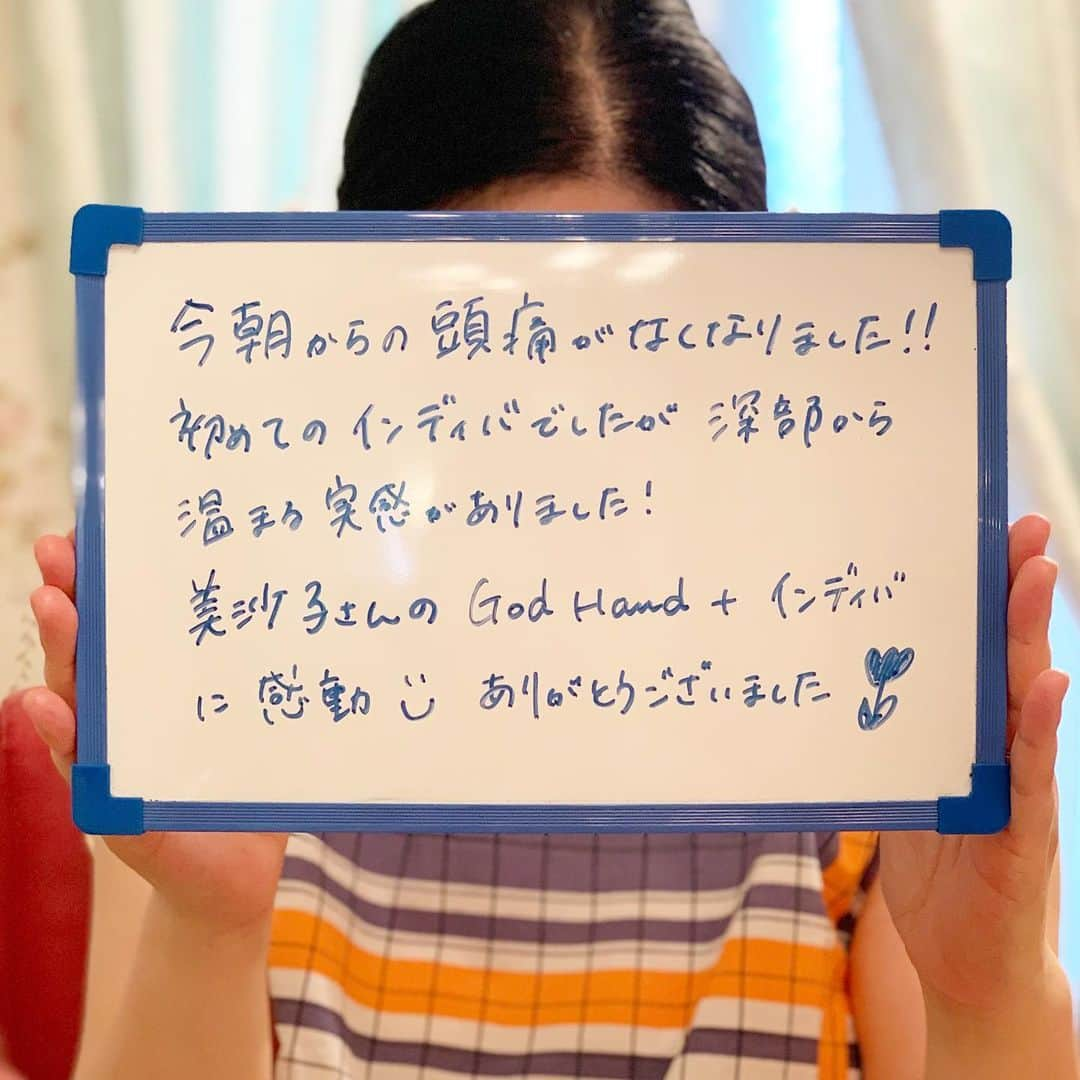 今朝からの頭痛がなくなりました!!
初めてのインディバでしたが 深部から
温まる実感がありました!
美沙子さんの God Hand + インディバ
に感動 ありがとうございました